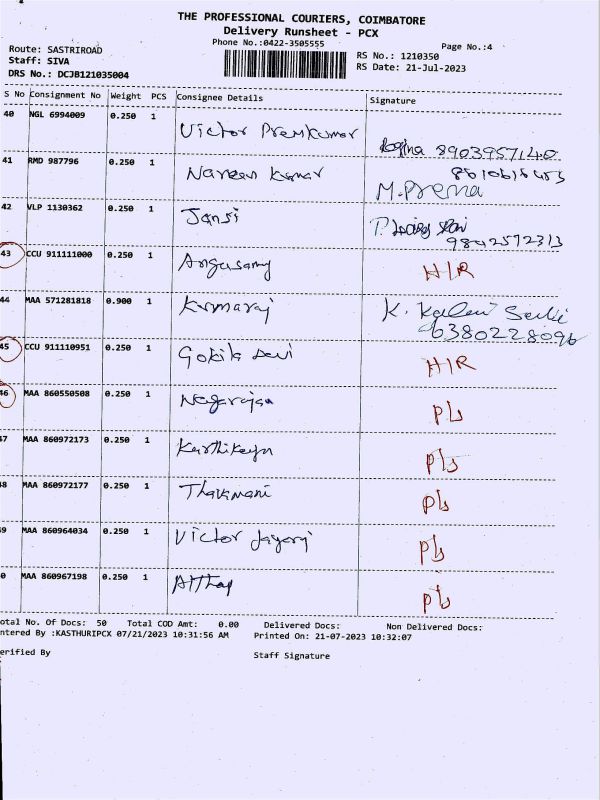 THE PROFESSIONAL COURIERS, COIMBATORE
Delivery Runsheet - PCX
Phone No.:0422-3505555
Page No.:4
Route: SASTRIROAD
Staff: SIVA
DRS No.: DCJB121035004
RS No.: 1210350
RS Date: 21-Jul-2023
S No Consignment No Weight PCS Consignee Details Signature
40 NGL 6994009 0.250 1 Victor Premkumar
Regina 8903957140
41 RMD 987796 0.250 1 Nareen Kumar
M.Prema
42 VLP 1130362 0.250 1 Jansi
9842572313
43 CCU 911111000 0.250 1 Angusamy H/R
44 MAA 571281818 0.900 1 Kumaraj K.
6380228096
45 CCU 911110951 0.250 1 Gokila Devi H/R
46 MAA 860550508 0.250 1 Nagarajan
47 MAA 860972173 0.250 1 Karthikeyn
48 MAA 860972177 0.250 1 Thavamani
49 MAA 860964034 0.250 1 Victor Jayaraj
0 MAA 860967198 0.250 1
otal No. Of Docs: 50 Total COD Amt: 0.00 Delivered Docs: Non Delivered Docs:
ntered By :KASTHURIPCX 07/21/2023 10:31:56 AM Printed On: 21-07-2023 10:32:07
erified By Staff Signature